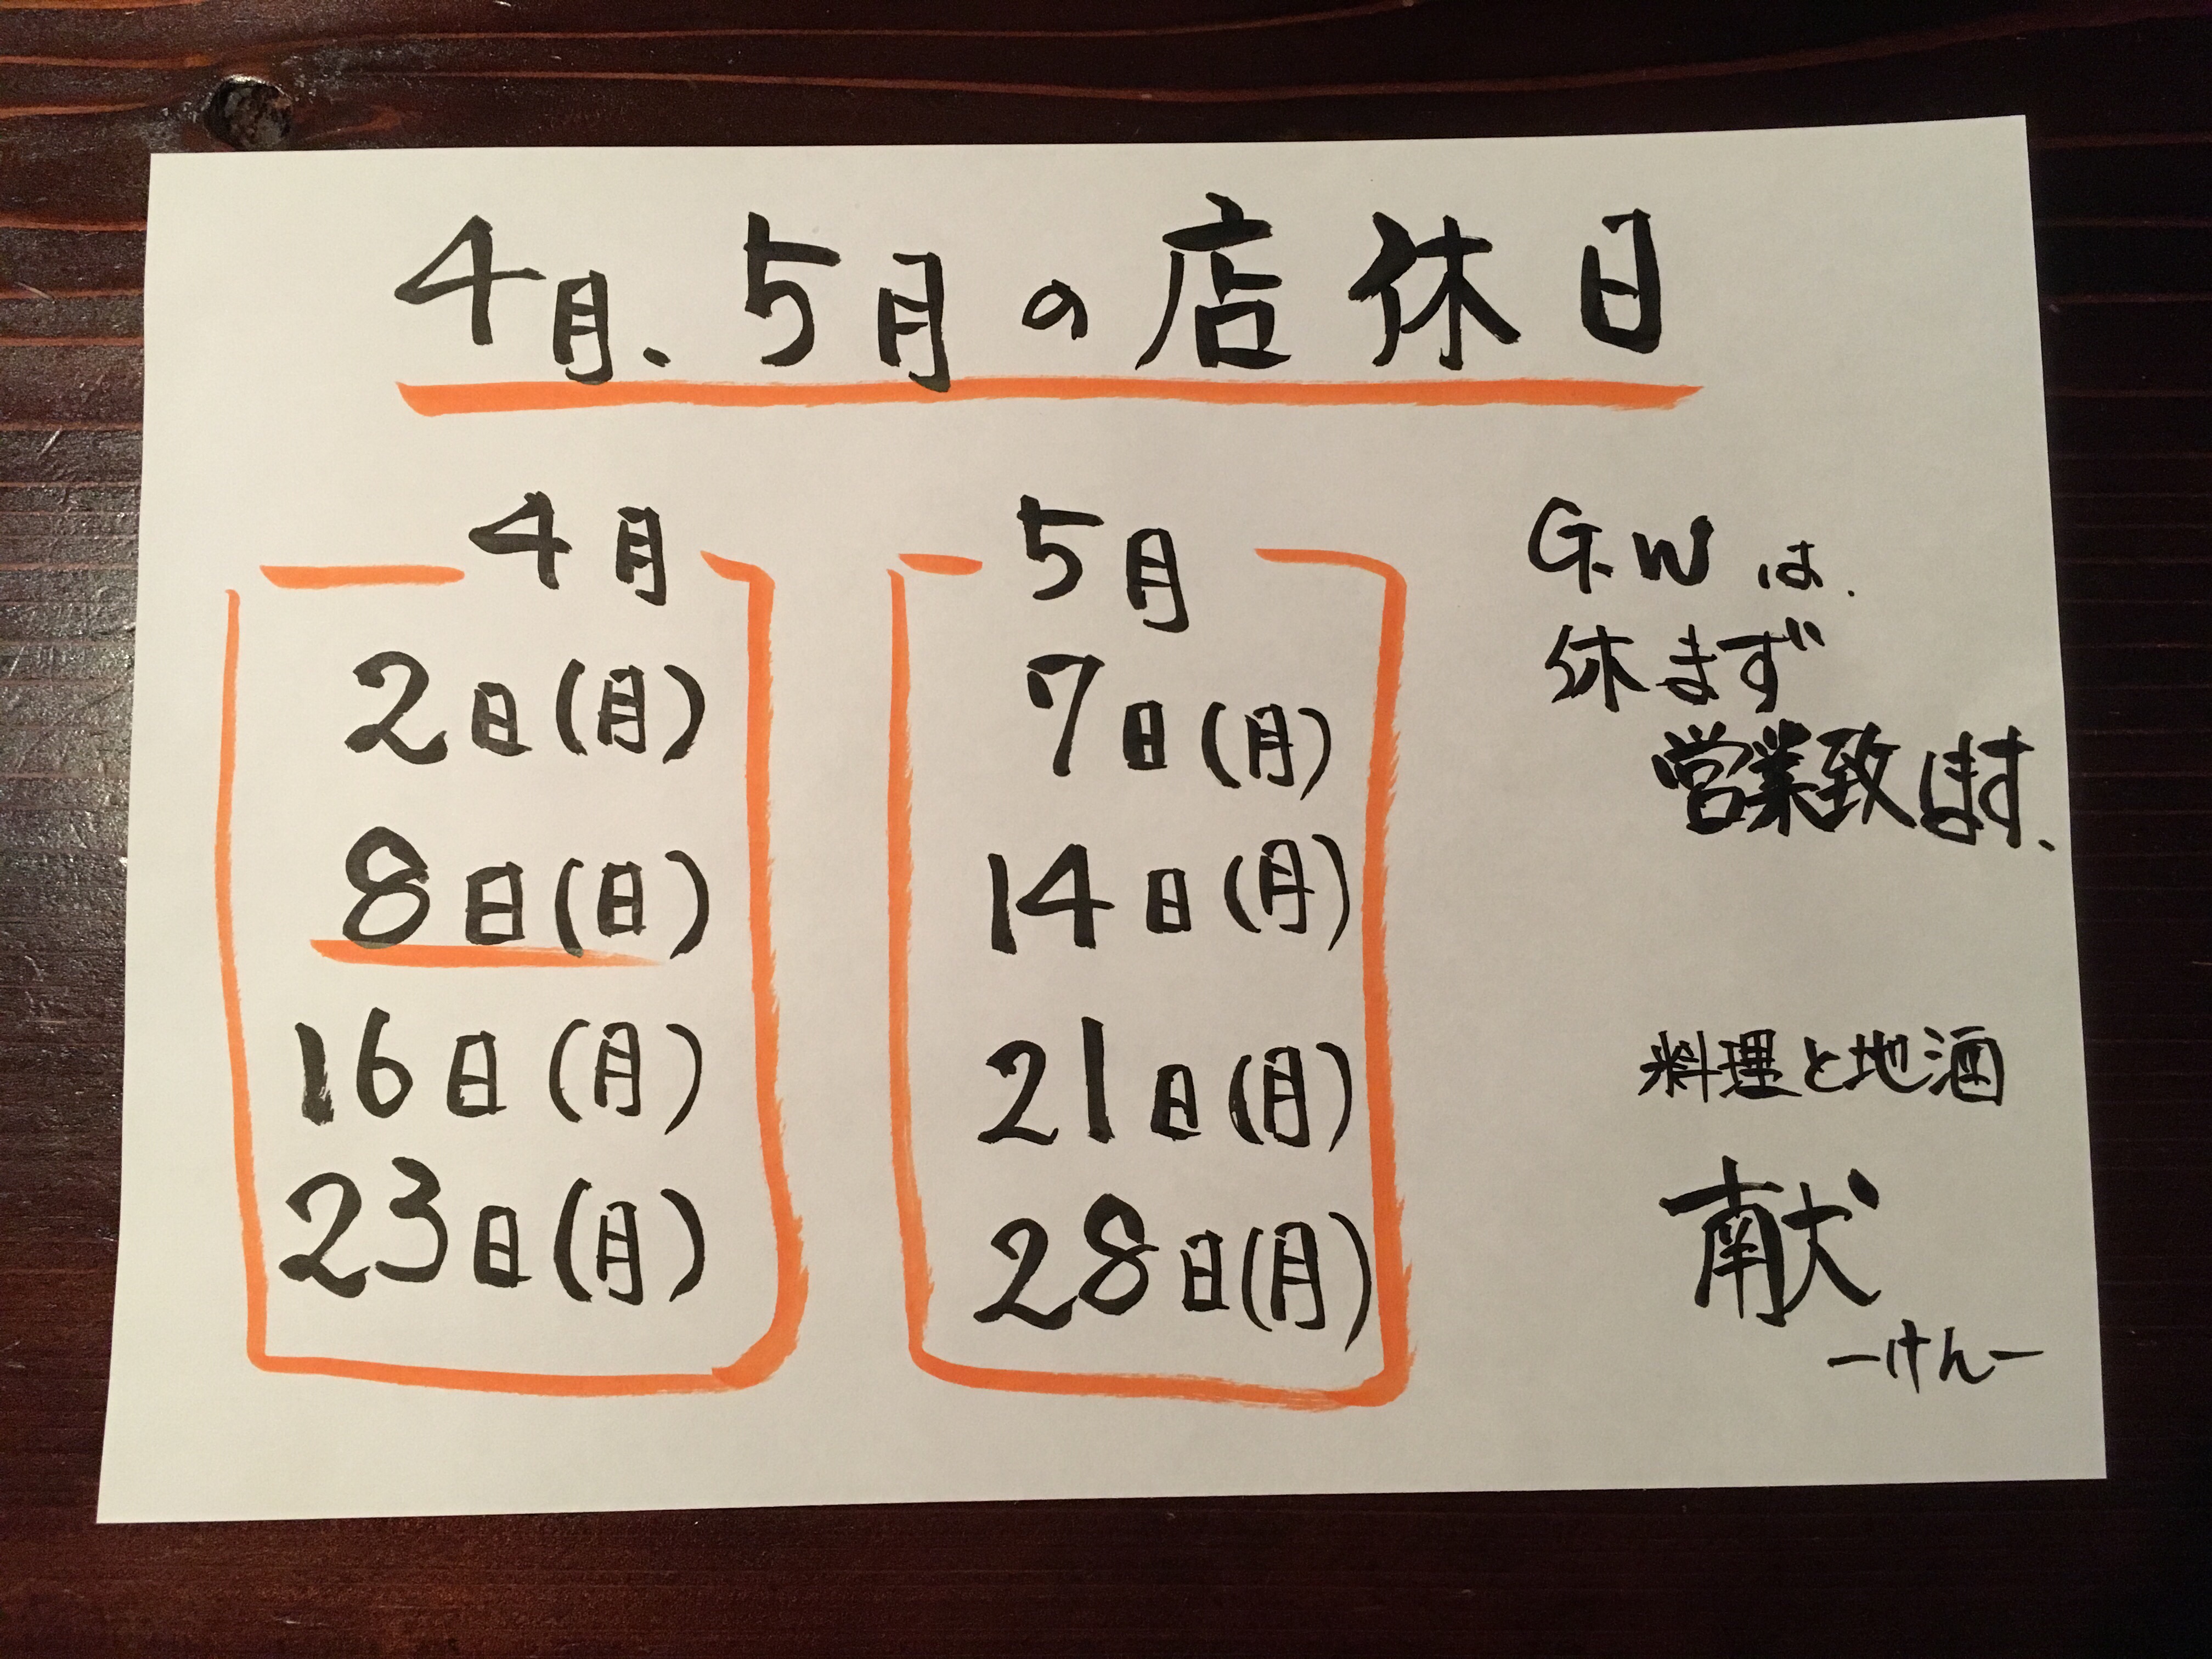 4月、5月の店休日
4月
2日(月)
8日(日)
16日(月)
23日(月)
5月
7日(月)
14日(月)
21日(月)
28日(月)
G.Wは、
休まず
営業致します、
料理と地酒
献
ーけんー